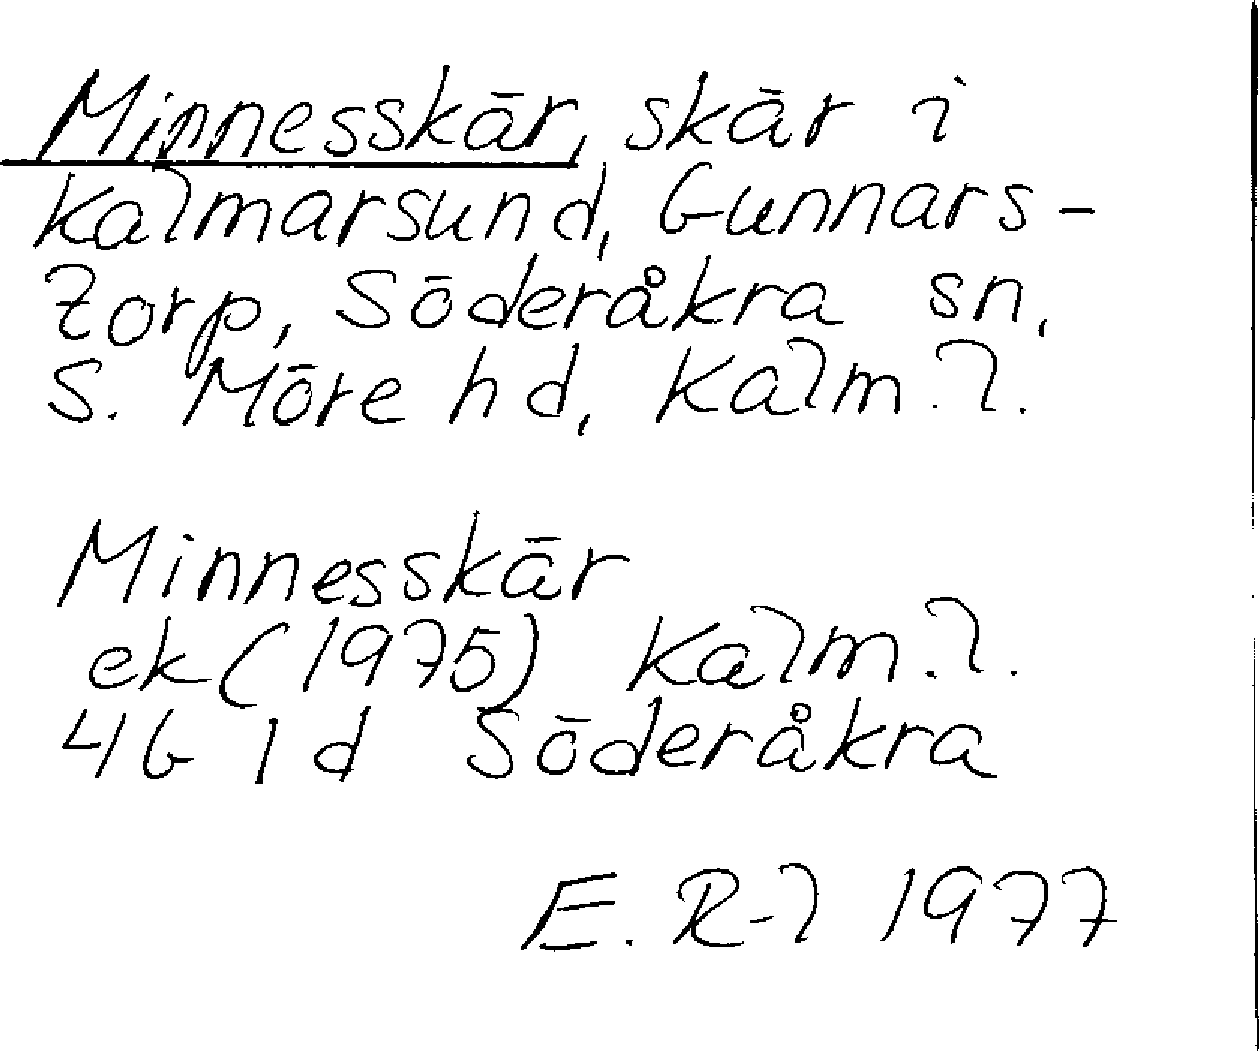 Minnesskär, skär i
Kalmarsund, Gunnars-
torp, Söderåkra sn,
S. Möre hd, Kalm. l.
Minnesskär
ek (1975) Kalm. l.
4G 1d Söderåkra
E. R-l 1977